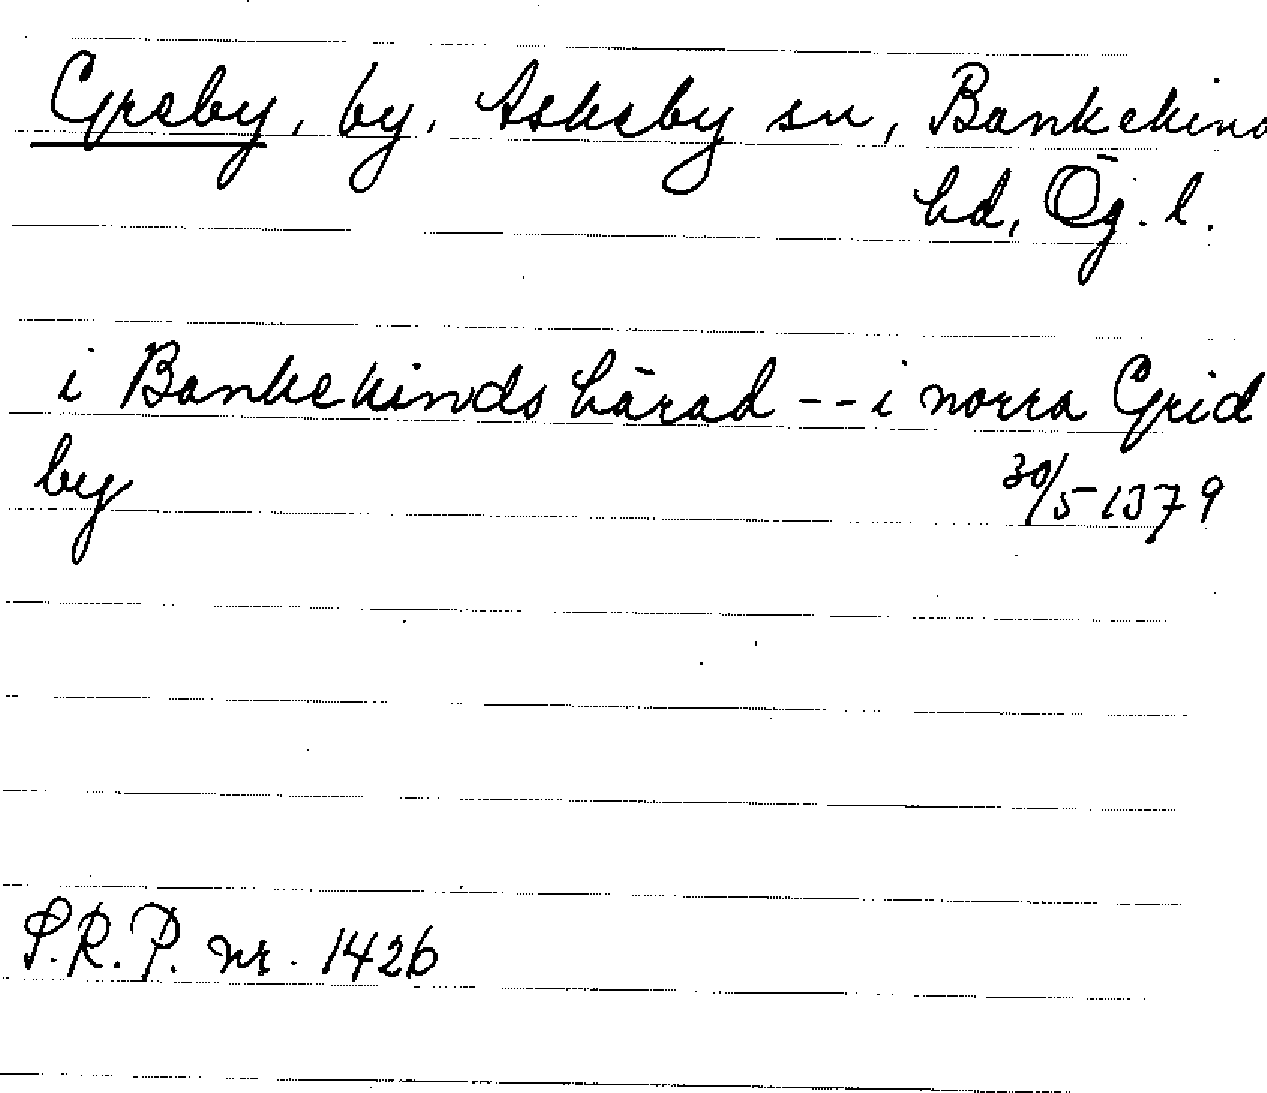 Greby, by, Askeby sn, Bankekind
hd, Ög. l.
i Bankekinds härad -- i norra Grid
by 30/5 1379
S.R.P. nr. 1426